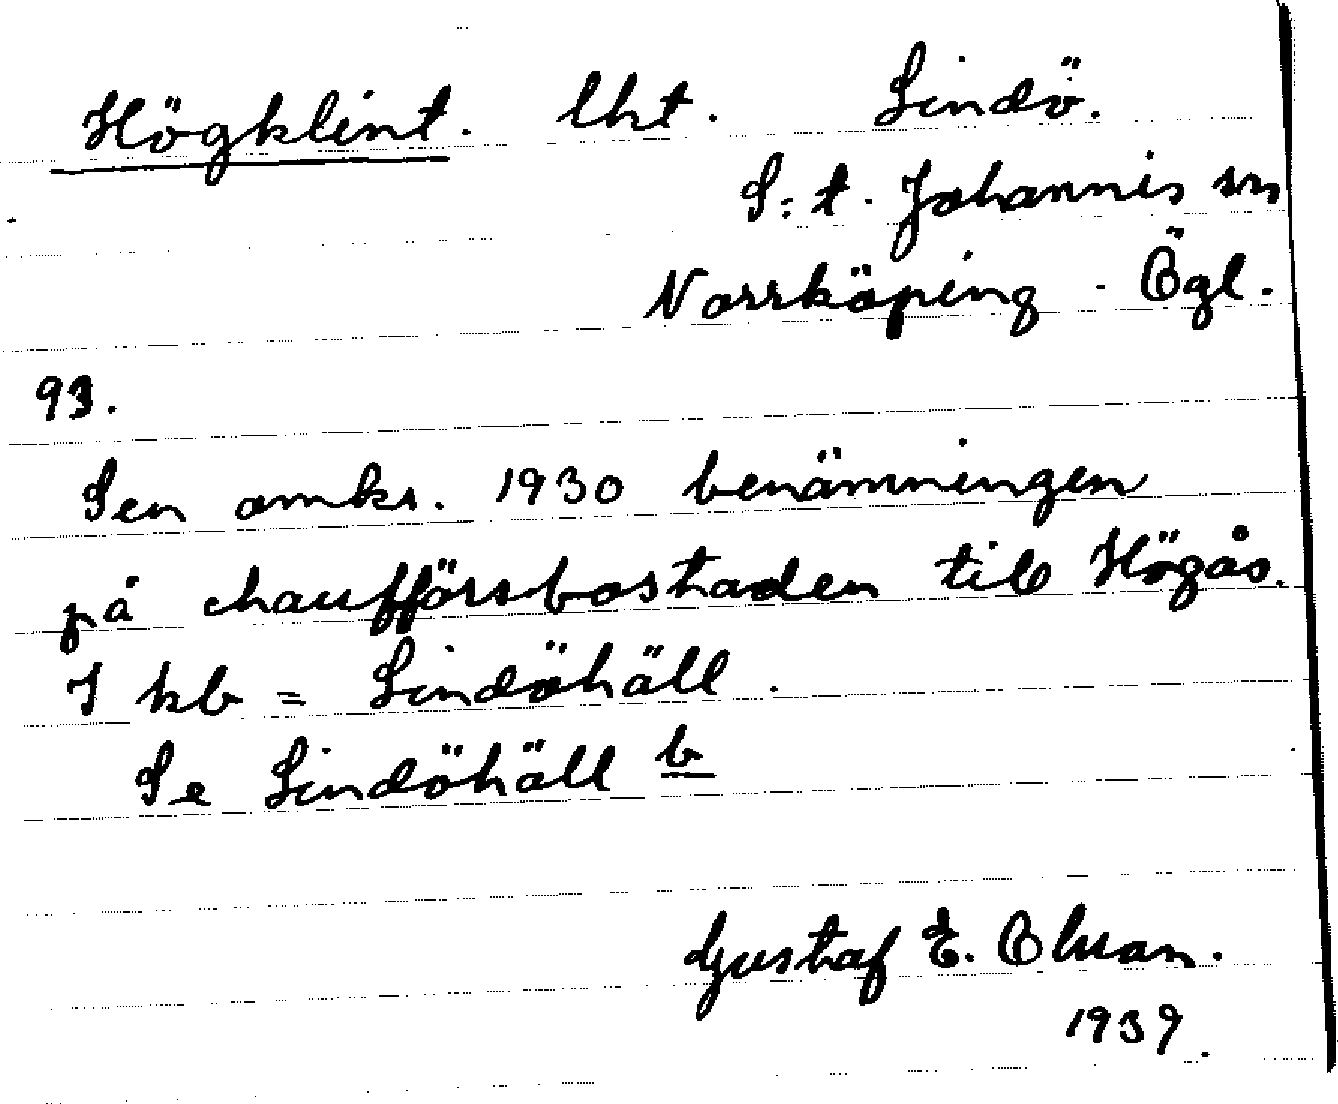 Högklint. lht. Lindö.
S:t. Johannis sn
Norrköping - Ögl.
93.
Sen omkr. 1930 benämningen
på chaufförsbostaden till Högås.
I kb = Lindöhäll.
Se Lindöhäll b
Gustaf E. Olsson.
1939.